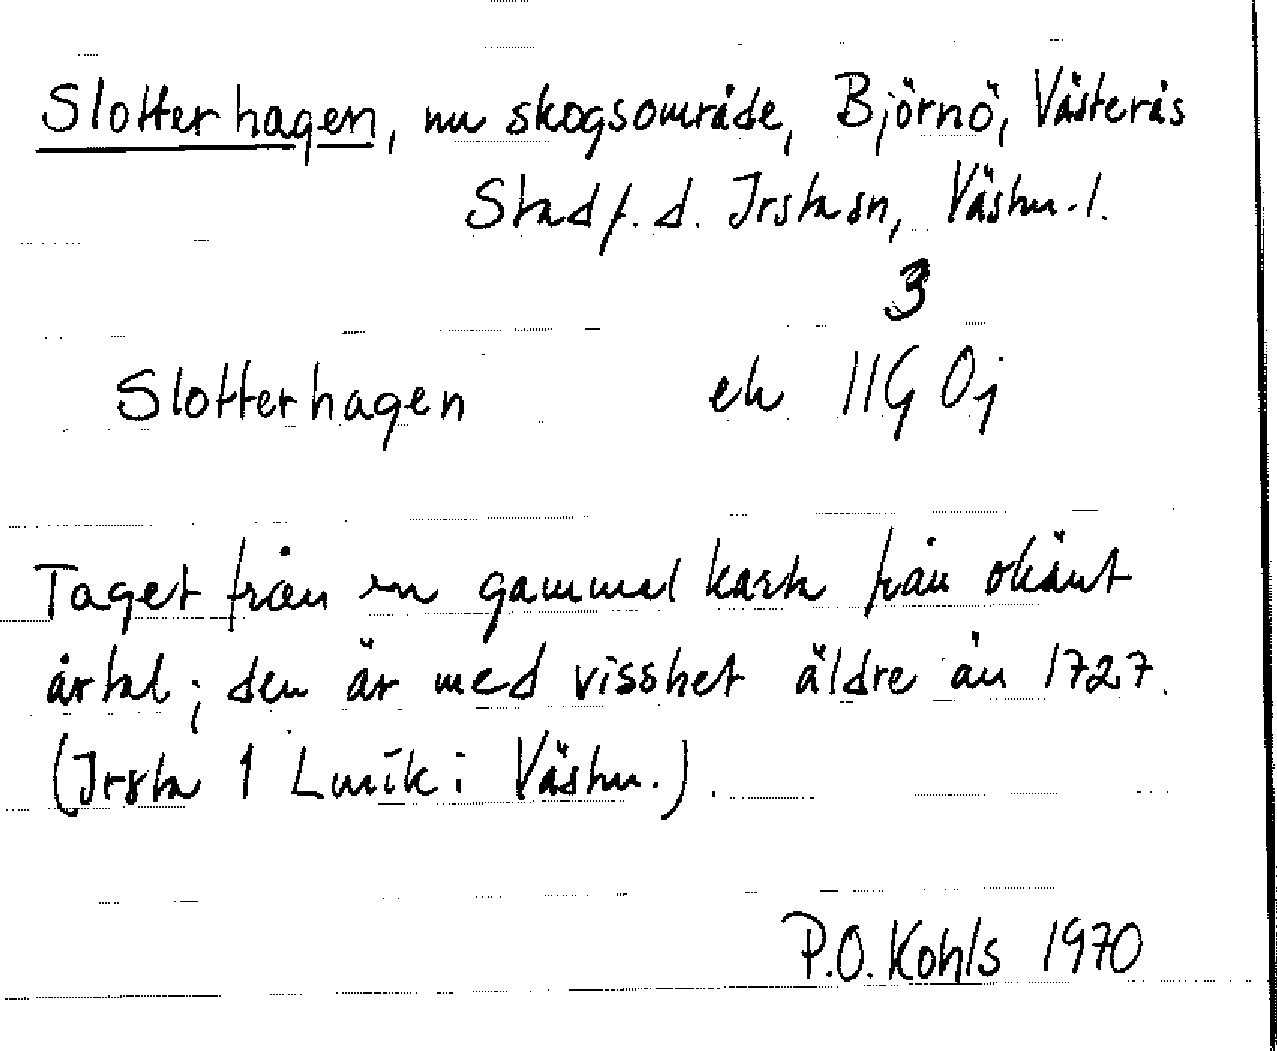 Slotterhagen, nu skogsområde, Björnö, Västerås
Stad f. d. Irsta sn, Västm. l.
3
Slotterhagen ek 11G 0j
Taget från en gammal karta från okänt
årtal; den är med visshet äldre än 1727.
(Irsta 1 Lmik i Västm.).
P.O. Kohls 1970